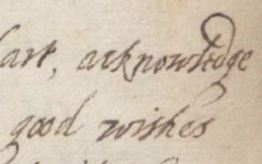 art, acknowledge
good wishes